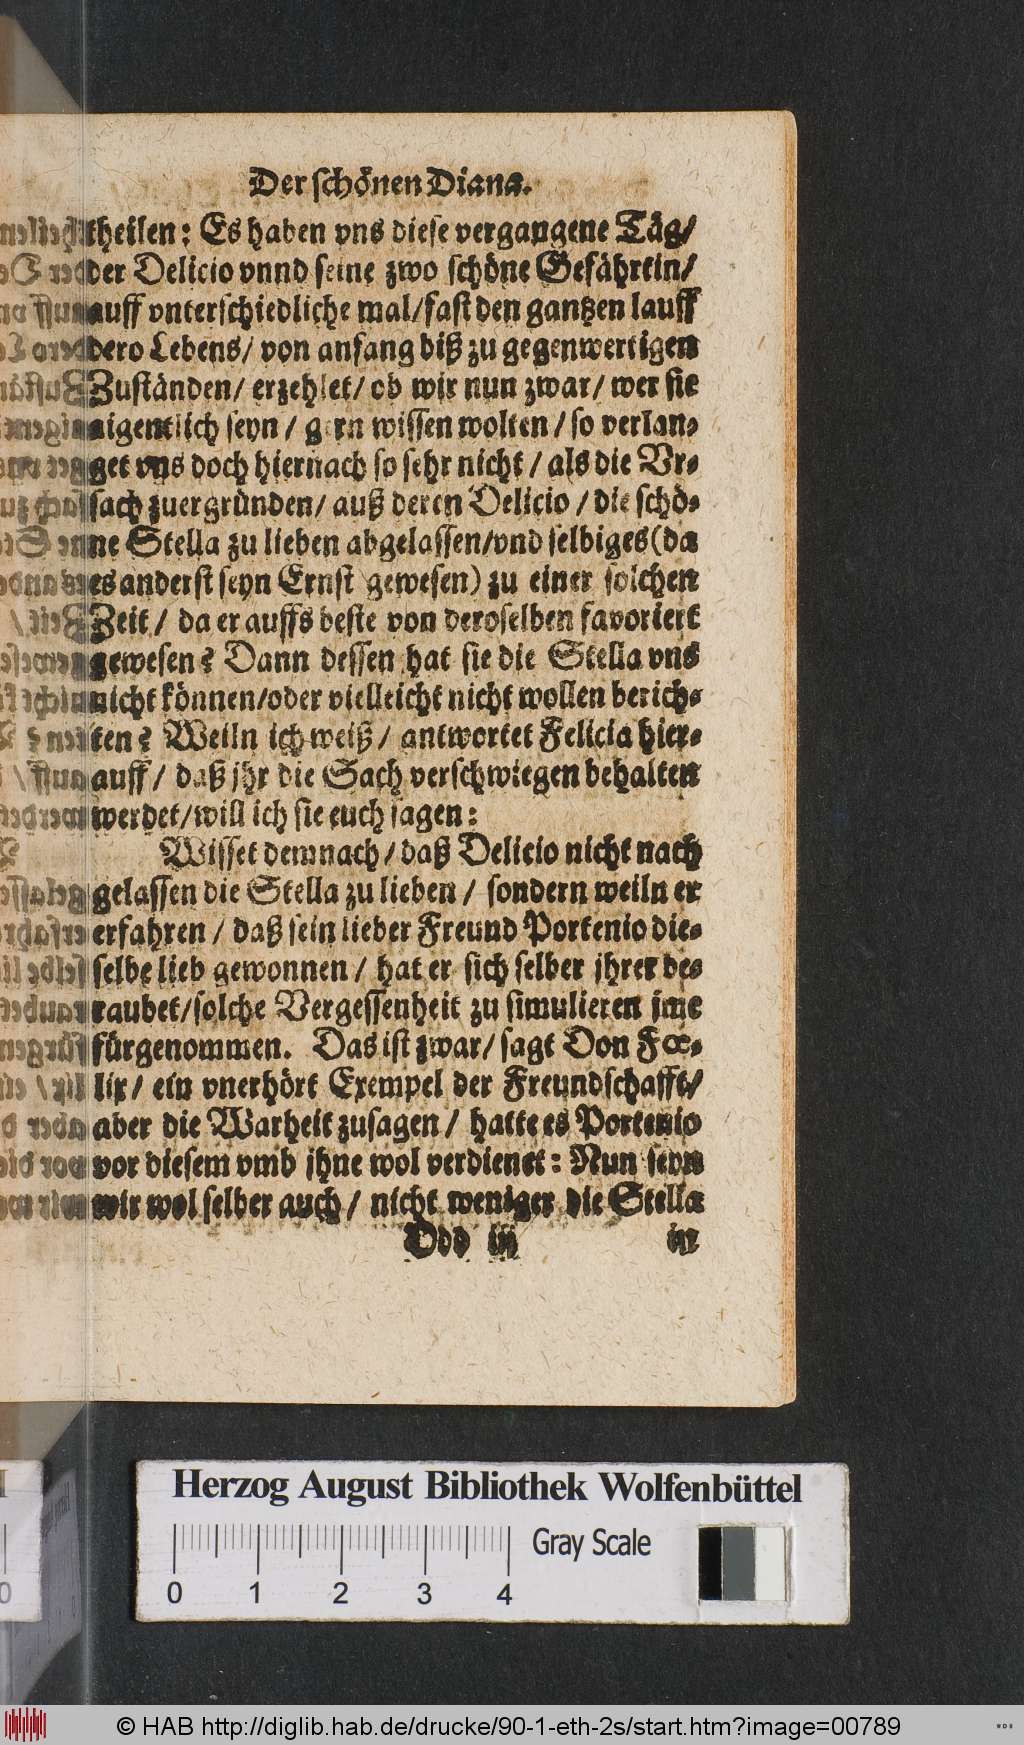 Der schönen Diana.
theilen: Es haben vns diese vergangene Täg/
der Delicio vnnd seine zwo schöne Gefährtin/
auff vnterschiedliche mal/fast den gantzen lauff
dero Lebens/ von anfang biß zu gegenwertigen
Zuständen/ erzehlet/ ob wir nun zwar/ wer sie
aigentlich seyn/ gern wissen wolten/ so verlan-
get vns doch hiernach so sehr nicht/ als die Vr-
sach zuergründen/ auß deren Delicio/ die schö-
ne Stella zu lieben abgelassen/vnd selbiges (da
es anderst seyn Ernst gewesen) zu einer solchen
Zeit/ da er auffs beste von deroselben favoriert
gewesen? Dann dessen hat sie die Stella vns
nicht können/oder vielleicht nicht wollen berich-
ten? Weiln ich weiß/ antwortet Felicia hier-
auff/ daß jhr die Sach verschwiegen behalten
werdet/will ich sie euch sagen:
Wisset demnach/ daß Delicio nicht nach
gelassen die Stella zu lieben/ sondern weiln er
erfahren/ daß sein lieber Freund Portenio die-
selbe lieb gewonnen/ hat er sich selber jhrer be-
raubet/solche Vergessenheit zu simulieren jme
fürgenommen. Das ist zwar/ sagt Don Fœ-
lix/ ein vnerhört Exempel der Freundschafft/
aber die Warheit zusagen/ hatte es Portenio
vor diesem vmb jhne wol verdienet: Nun seyn
wir wol selber auch/ nicht weniger die Stella
Ddd iij in
Herzog August Bibliothek Wolfenbüttel
Gray Scale
0 1 2 3 4
© HAB http://diglib.hab.de/drucke/90-1-eth-2s/start.htm?image=00789